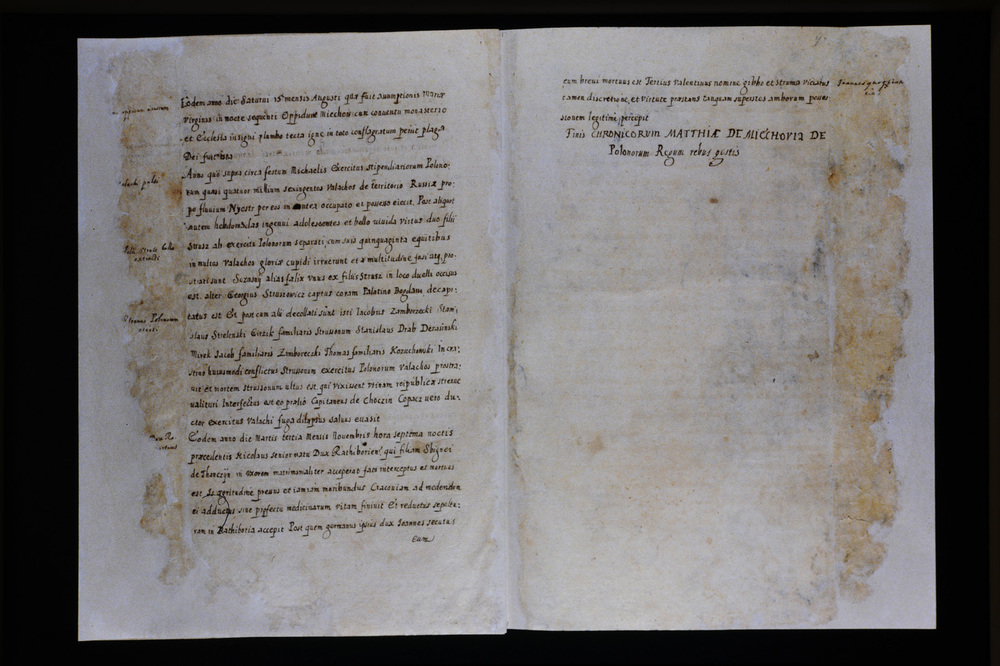 Eodem anno die Saturni 15 mensis Augusti quæ fuit assumptionis Mariæ
Virginis in nocte sequenti Oppidum Miechow cum conventu monasterio
et Ecclesia insigni plumbo tecta igne in toto conflagratum periit plaga
Dei
Anno quo supra circa festum Michaelis Exercitus stipendiariorum Polono-
rum quasi quatuor millium sexingentos Valachos de territorio Russiæ pro-
pe fluvium Nyestr per eos occupato et possesso eiecit. Post aliquot
autem hebdomadas ingenui adolescentes et bello vivida virtus duo filii
Strusz ab exercitu Polonorum separati cum suis quinquaginta equitibus
in multos Valachos gloriæ cupidi irruerunt et a multitudine fusi atq pro-
strati sunt Sczasny alias fælix unus ex filiis Strusz in loco duelli occisus
est. alter Georgius Strussowicz captus coram Palatino Bogdano decapi-
tatus est Et post eum alii decollati sunt isti Iacobus Zamborzecki Stani-
slaus Strelenski familiaris Strussonum Stanislaus Drab Derssinski
Mirek Jacob familiaris Zamboreczki Thomas familiaris Kozuchowski In cra-
stino huiusmodi conflictus Strussonum exercitus Polonorum Valachos prostra-
vit et mortem Strussonum ultus est qui vixissent utinam reipublicæ strenue
valituri Interfectus est eo prælio Capitaneus de Choczin Copacz vero du-
ctor exercitus Valachi fuga dilapsus salvus evasit
Eodem anno die Martis tertia Mensis Novembris hora septima noctis
præcedentis Nicolaus senior natu Dux Rathiborien qui filiam Sbignei
de Thanczÿn in uxorem matrimonialiter acceperat fato interceptus et mortuus
est ægritudine pressus et iamiam moribundus Cracoviam ad medendum
ei adductus sine profectu medicinarum vitam finivit Et reductus sepultu-
ram in Rathiboria accepit Post quem germanus ipsius dux Ioannes secutus
Eum
eum brevi mortuus est Tertius Valentinus nomine gibbo et struma viciatus
tamen discretione et virtute præstans tanquam superstes amborum posses-
sionem legitime percepit
Finis CHRONICORUM MATTHIÆ DE MIECHOVIA DE
Polonorum Regum rebus gestis